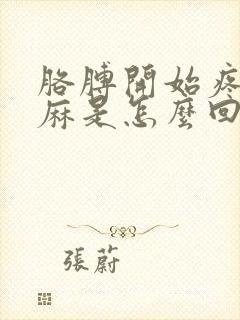 胳膊開始疼
麻是怎麼回
張蔚